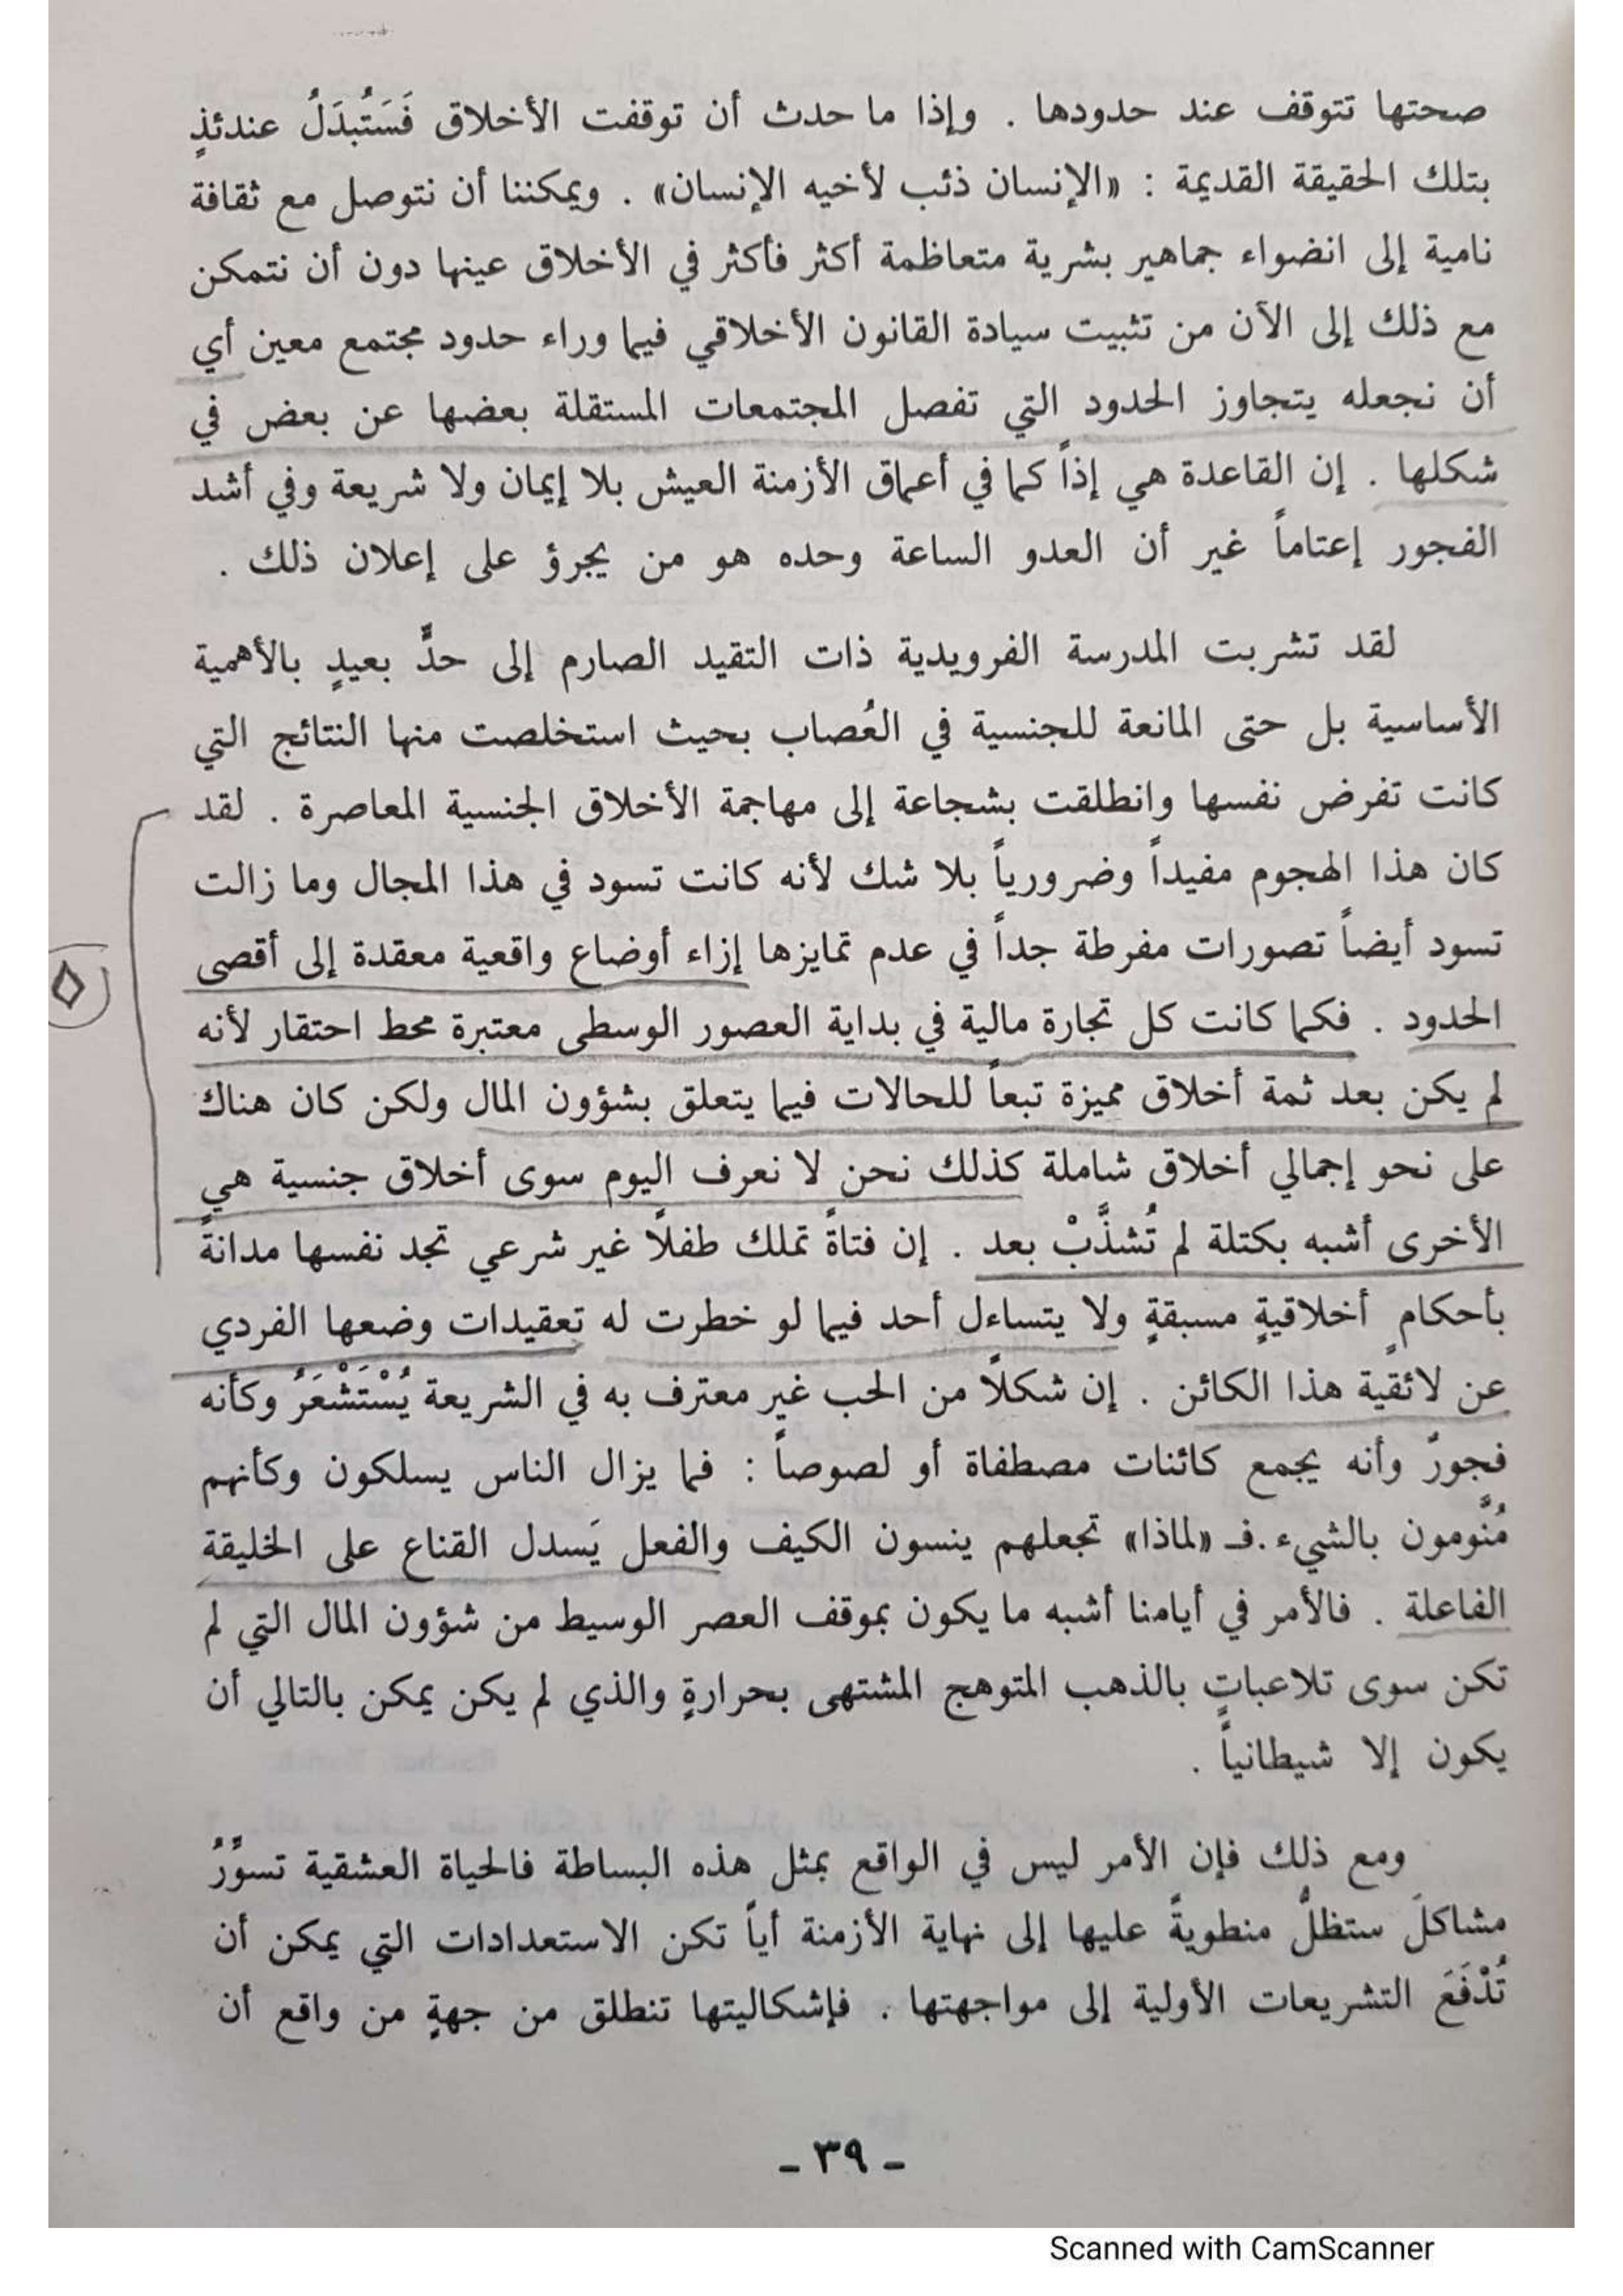 صحتها تتوقف عند حدودها . وإذا ما حدث أن توقفت الأخلاق فَسَتُبدَلُ عندئذٍ
بتلك الحقيقة القديمة : «الإنسان ذئب لأخيه الإنسان» . ويمكننا أن نتوصل مع ثقافة
نامية إلى انضواء جماهير بشرية متعاظمة أكثر فأكثر في الأخلاق عينها دون أن نتمكن
مع ذلك إلى الآن من تثبيت سيادة القانون الأخلاقي فيما وراء حدود مجتمع معين أي
أن نجعله يتجاوز الحدود التي تفصل المجتمعات المستقلة بعضها عن بعض في
شكلها . إن القاعدة هي إذاً كما في أعماق الأزمنة العيش بلا إيمان ولا شريعة وفي أشد
الفجور إعتاماً غير أن العدو الساعة وحده هو من يجرؤ على إعلان ذلك .
لقد تشربت المدرسة الفرويدية ذات التقيد الصارم إلى حدٍّ بعيدٍ بالأهمية
الأساسية بل حتى المانعة للجنسية في العُصاب بحيث استخلصت منها النتائج التي
كانت تفرض نفسها وانطلقت بشجاعة إلى مهاجمة الأخلاق الجنسية المعاصرة . لقد
كان هذا الهجوم مفيداً وضرورياً بلا شك لأنه كانت تسود في هذا المجال وما زالت
تسود أيضاً تصورات مفرطة جداً في عدم تمايزها إزاء أوضاع واقعية معقدة إلى أقصى
الحدود . فكما كانت كل تجارة مالية في بداية العصور الوسطى معتبرة محط احتقار لأنه
لم يكن بعد ثمة أخلاق مميزة تبعاً للحالات فيما يتعلق بشؤون المال ولكن كان هناك
على نحو إجمالي أخلاق شاملة كذلك نحن لا نعرف اليوم سوى أخلاق جنسية هي
الأخرى أشبه بكتلة لم تُشذَّبْ بعد . إن فتاةً تملك طفلًا غير شرعي تجد نفسها مدانةً
بأحكامٍ أخلاقيةٍ مسبقةٍ ولا يتساءل أحد فيما لو خطرت له تعقيدات وضعها الفردي
عن لائقية هذا الكائن . إن شكلًا من الحب غير معترف به في الشريعة يُسْتَشْعَرُ وكأنه
فجورٌ وأنه يجمع كائنات مصطفاة أو لصوصاً : فما يزال الناس يسلكون وكأنهم
مُنَّومون بالشيء . فـ «لماذا» تجعلهم ينسون الكيف والفعل يَسدل القناع على الخليقة
الفاعلة . فالأمر في أيامنا أشبه ما يكون بموقف العصر الوسيط من شؤون المال التي لم
تكن سوى تلاعباتٍ بالذهب المتوهج المشتهى بحرارةٍ والذي لم يكن يمكن بالتالي أن
يكون إلا شيطانياً .
ومع ذلك فإن الأمر ليس في الواقع بمثل هذه البساطة فالحياة العشقية تسوِّرُ
مشاكلَ ستظلُّ منطويةً عليها إلى نهاية الأزمنة أياً تكن الاستعدادات التي يمكن أن
تُدْفَعَ التشريعات الأولية إلى مواجهتها . فإشكاليتها تنطلق من جهةٍ من واقع أن
- ٣٩ -
Scanned with CamScanner